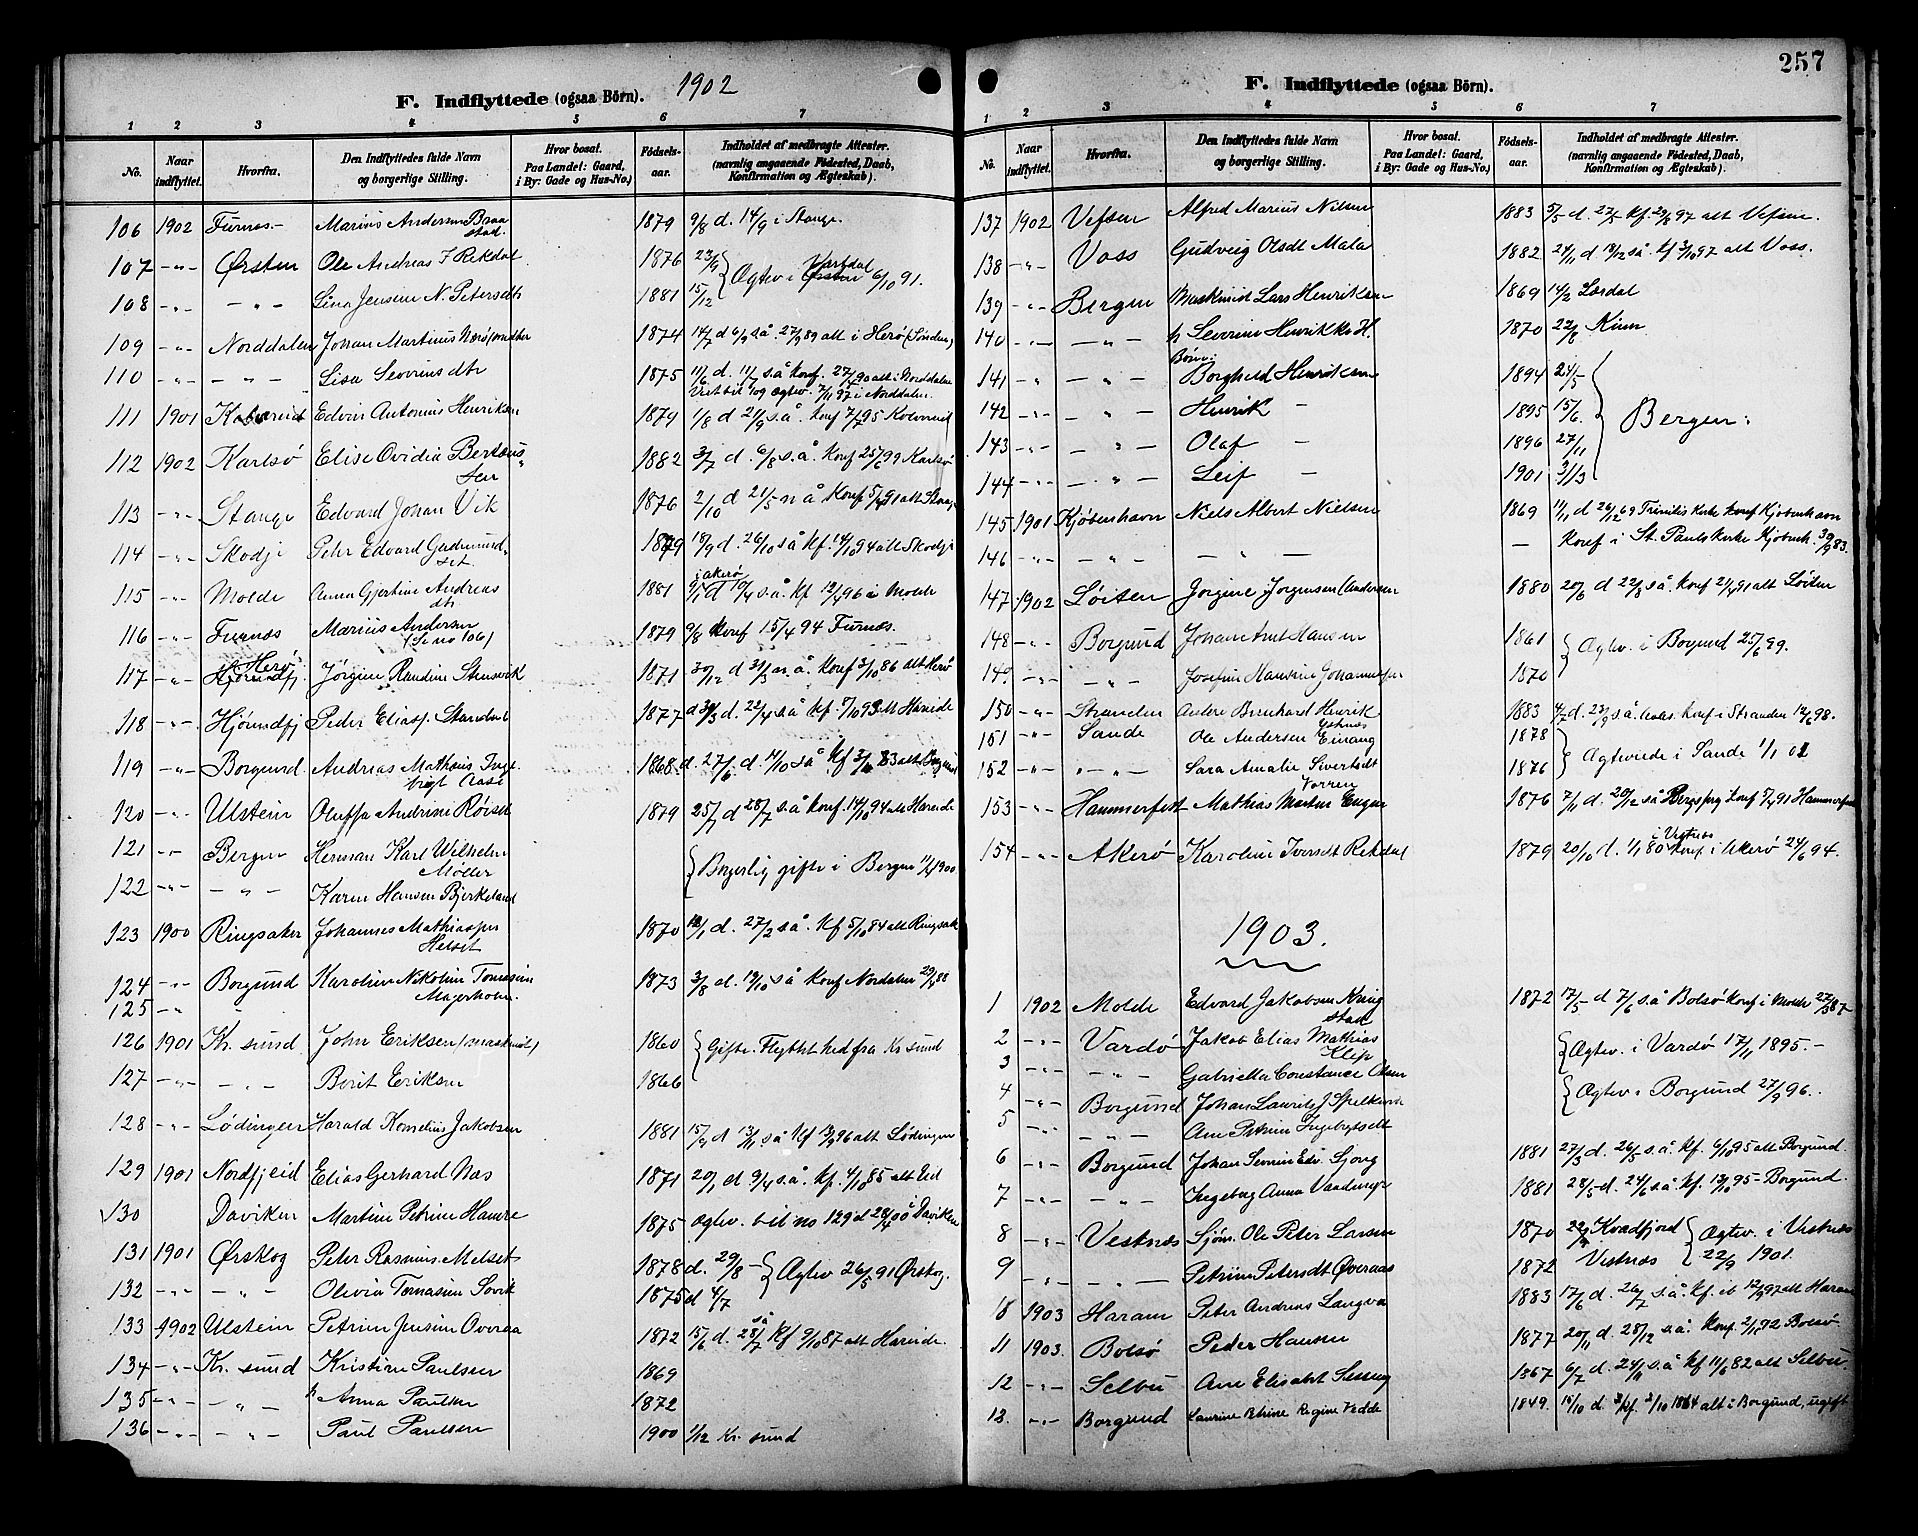 1902
F. Indflyttede (ogsaa Börn).
1 2 3 4 5 6 7
No. Naar indflyttet. Hvorfra. Den Indflyttedes fulde Navn og borgerlige Stilling. Hvor bosat. Paa Landet: Gaard, i By: Gade og Hus-No.) Fødsels-aar. Indholdet af medbragte Attester. (navnlig angaaende Födested, Daab, Konfirmation og Ægteskab).
106 1902 Furnæs.- Marius Andersen Braastad. 1879 9/8 d. 14/9 i Stange.
107 -"- Ørsten Ole Andreas F Rekdal 1876 23/9 Ægtev i Ørsten Vartdal 6/10 91.
108 -"- -"- Lina Jensine N. Petersdtr 1881 15/12
109 -"- Norddalen Johan Martinus 1874 14/7 d 6/9 s.å. 27/9 89 alt i Herø
110 -"- -"- Lisa Severinsdtr 1875 11/6 d. 11/7 s.å. Konf. 27/4 90 alt i Norddalen
Ægtev. 7/11 97 i Norddalen.
111 1901 Edvin Antonius Henriksen 1879 1/8 d 21/9 s.å. Konf 7/7 95
112 1902 Karlsø Elise Ovidia Berteussen 1882 3/7 d. 6/8 s.å. Konf 25/6 99 Karlsø
113 -"- Stange Edvard Johan Vik 1876 2/10 d 21/5 n å Konf 5/4 91 alt Stange
114 -"- Skodje Peter Edvard Gudmundset 1879 18/9 d. 26/10 s å Kf. 14/10 94 alt Skodje
115 -"- Molde Anna Gjertine Andreasdtr 1881 9/1 d 10/4 s.å. Kf 12/4 96 i Molde
i Akerø
116 -"- Furnæs Marius Andersen (Se no 106) 1879 9/8 Konf 15/4 94 Furnæs.
117 -"- Hjørundfj Herø Jørgine Randine Stensvik 1871 30/12 d 31/3 n.å. Konf 3/10 86 alt Herø
118 -"- Hjørundfj Peder Eliasp. Standal 1877 d. 22/4 s.å Kf. 7/10 93 alt Hareide
119 -"- Borgund Andreas Mathæus Aase 1868 d. 27/6 d. 11/10 s å Kf 83 alt Borgund
120 -"- Ulstein Oluffa Andrine Røiset 1879 25/7 d 28/7 s.å Konf 14/10 94 alt Hareide
121 -"- Bergen Herman Karl Wilhelm Møller Borgerlig gifte i Bergen 11/4 1900
122 -"- -"- Karen Hansen Bjerkeland
123 1900 Ringsaker Johannes Mathiasen Helset 1870 18/1 d. 27/2 s å. Kf 5/10 84 alt Ringsak
124 -"- Borgund Karoline Nikoline Tomasine Magerholm. 1873 3/8 d. 19/10 s å Konf Nordalen 29/4 88
125 -"-
126 1901 Kr. sund John Eriksen (maskinist) 1860 Gifte. Flyttet hed fra Kr sund
127 -"- -"- Berit Eriksen 1866
128 -"- Lødingen Harald Kornelius Jakobsen 1881 15/9 d 13/11 s å Kf 13/9 96 alt Lødingen
129 1901 Nordfjeid Elias Gerhard Nås 1871 20/1 d 9/4 s.å. Kf. 4/10 85 alt Eid
130 Daviken Martine Petrine Hamre 1875 Ægtev. til no 129 d 28/4 00 i Daviken
131 1901 Ørskog Peter Rasmus Melset 1878 d. 29/8 - Ægtev 26/5 91 Ørskog.
132 -"- -"- Olivia Tomasine Sovik 1875 d 4/7
133 1902 Ulstein Petrine Jensine Overaa 1872 15/6 d. 28/7 s å Kf 9/10 87 alt Hareide.
134 -"- Kr. sund Kristian Paulsen 1869
135 -"- -"- h Anna Paulsen 1872
136 -"- -"- Paul Paulsen 1900 1/12 Kr. sund
257
F. Indflyttede (ogsaa Börn).
1 2 3 4 5 6 7
No. Naar indflyttet. Hvorfra. Den Indflyttedes fulde Navn og borgerlige Stilling. Hvor bosat. Paa Landet: Gaard, i By: Gade og Hus-No.) Födsels-aar. Indholdet af medbragte Attester. (navnlig angaaende Fødested, Daab, Konfirmation og Ægteskab).
137 1902 Vefsen Alfred Marius Nilsen 1883 5/5 d. 27/5 Kf. 29/8 97 alt Vefsen.
138 -"- Voss Gudveig Olsdt Mala 1882 24/11 d 13/12 s å. Kf 3/10 97 alt Voss.
139 -"- Bergen Maskinist Lars Henriksen 1869 14/2 Lærdal
140 -"- -"- h Severine Henrikke H. 1870 22/8 Kinn
Børn:
141 -"- -"- Borghild Henriksen 1894 24/5
142 -"- -"- Henrik - 1895 15/6. Bergen:
143 -"- -"- Olaf - 1896 27/11
144 -"- -"- Leif - 1901 31/3
145 1901 Kjøbenhavn Niels Albert Nielsen 1869 11/11 d 26/12 69 Trinitis Kirke Konf Kjøbenhavn
146 -"- -"- - " - - Konf i St. Pauls Kirke Kjøbenh. 30/9 83.
147 1902 Løiten Jørgine Jørgensen (Andersen 1880 20/6 d 22/8 s.å. Konf 21/4 91 alt Løiten
148 -"- Borgund Johan Arnt Hansen 1861 Ægtev. i Borgund 25/6 99.
149 -"- -"- Josefine Hansine 1870
150 -"- Stranden Andere Bernhard Henrik Ystnæs 1883 4/7 d. 23/9 s.å. Konf i Stranden 12/6 98.
151 -"- Sande Ole Andersen Einang 1878 Ægteviede i Sande 1/1 02
152 -"- -"- Sara Amalie Sivertsdt Vorren 1876
153 -"- Hammerfest Mathias Martin 1876 7/11 d. 20/12 s å Konf 7/4 91 Hammerfest
154 -"- Akerø Karoline Iversdt Rekdal 1879 20/10 d. 1/1 80 i Vestnes Konf i Akerø 24/6 94.
1903.
1 1902 Molde Edvard Jakobsen Kringstad 1872 17/5 d 7/6 s.å Bolsø Konf i Molde 87
2 -"- Vardø Jakob Elias Mathias Klep Ægtev. i Vardø 17/11 1895.-
3 -"- -"- Gabriella Constance Olsen
4 -"- Borgund Johan Laurits J Spelkavik Ægtev i Borgund 27/9 96.
5 -"- -"- Ane Petrine Ingebrigtsdt
6 -"- Borgund Johan Severin Edv. Ljong 1881 27/3 d. 26/5 s.å. Kf. 6/10 95 alt Borgund.
7 -"- -"- Ingeborg Anna 1881 28/5 d. 24/6 s å. Kf. 13/10 95 - Borgund.
8 -"- Vestnæs Sjøm. Ole Peter Larsen 1870 Kvadfjord Ægtev. i Vestnæs
9 -"- -"- Petrine Petersdt Øveraas 1872 Vestnæs 22/9 1901.
10 1903 Haram Peter Andreas Langva 1883 17/6 d. 26/7 s.å. Kf. 12/9 97 alt Haram
11 1903. Bolsø Peder Hansen 1877 20/11 d. 28/12 s.å. Konf. Bolsø.
12 -"- Selbu Ane Elisabet 1867 6/7 d. 24/11 s.å Kf 11/6 82 alt Selbu.
12. -"- Borgund Laurine Petrine Regine Vedde 1849. 15/10 d. Kf. 2/10 1864 alt i Borgund, ugift